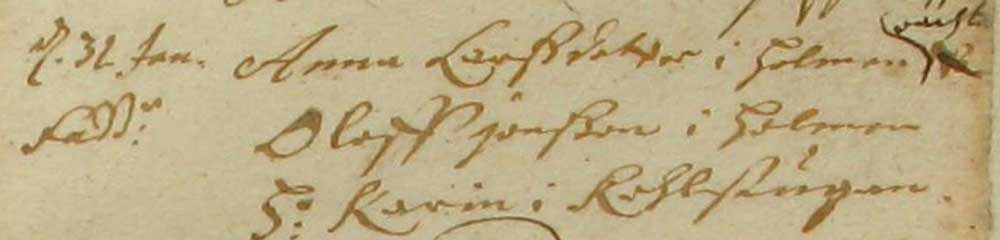 d. 31 Jan. Anna Larsdotter i Holmen
Fadd: Oloff Jönsson i Holmen
H: Karin i Kohlstugan.